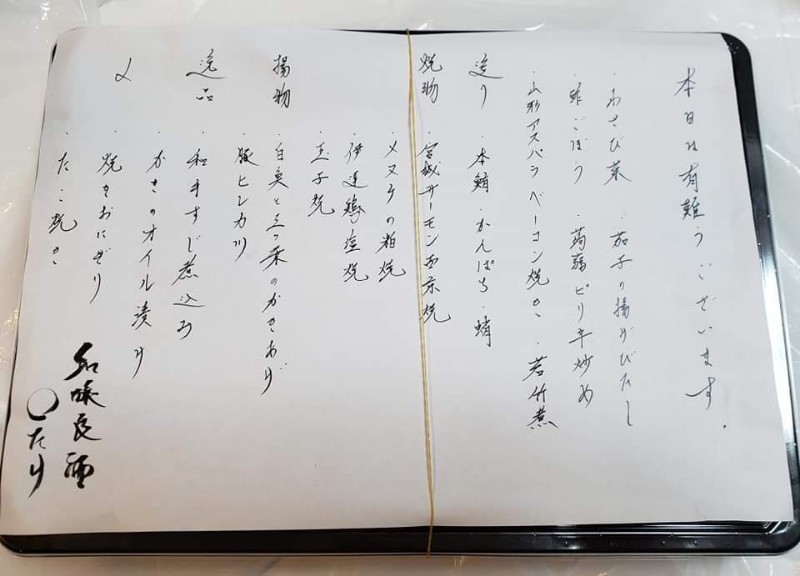 本日は有難うございます。
・わさび菜 ・茄子の揚げびたし
・酢ごぼう ・蒟蒻ピリ辛炒め
・山形アスパラベーコン焼き ・若竹煮
造り ・本鮪・かんぱち・蛸
焼物 ・宮城サーモン西京焼
・メヌケの粕焼
・伊達鶏塩焼
・玉子焼
揚物 ・白魚と三つ葉のかきあげ
・豚ヒレカツ
逸品 ・和牛すじ煮込み
・かきのオイル漬け
〆 ・焼きおにぎり
・たこ焼き
味良酒
〇たけ